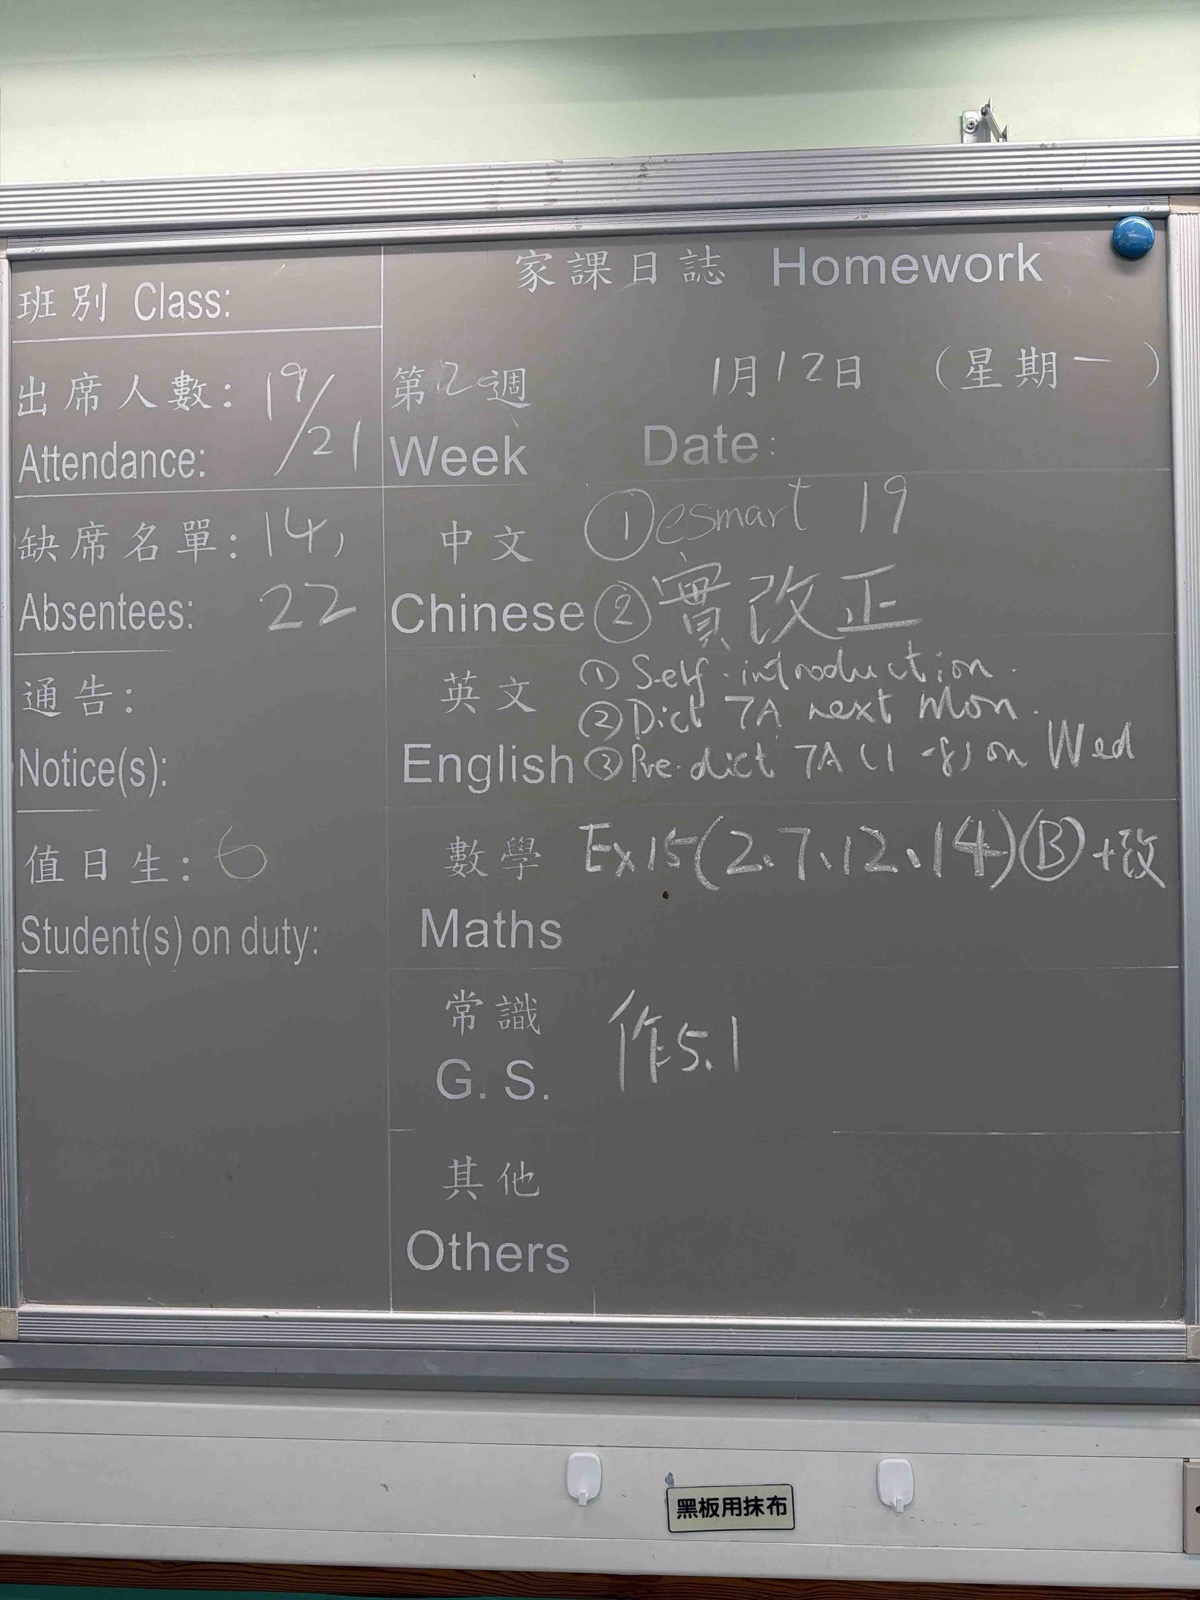 家課日誌 Homework
班別 Class:
出席人數: 19/21
Attendance:
第20週
Week
1月12日 (星期一)
Date:
缺席名單: 14,
Absentees: 22
中文 ① esmart 19
Chinese ② 實改正
通告:
Notice(s):
英文 ① Self-introduction.
② Dict 7A next Mon.
English ③ Pre-dict 7A (1-8) on Wed
值日生: 6
Student(s) on duty:
數學 Ex15(2、7、12、14)Ⓑ+改
Maths
常識 作5.1
G. S.
其他
Others
黑板用抹布